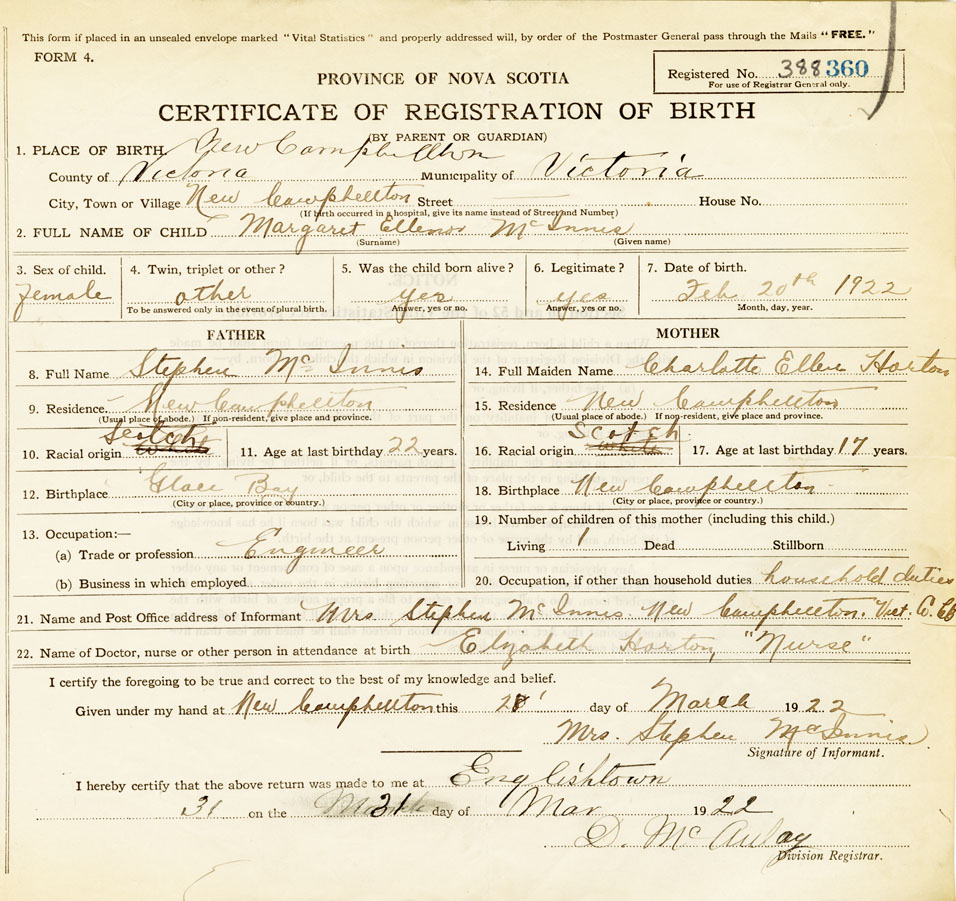 This form if placed in an unsealed envelope marked "Vital Statistics" and properly addressed will, by order of the Postmaster General pass through the Mails "FREE."
FORM 4.
Registered No. 388360
For use of Registrar General only.
PROVINCE OF NOVA SCOTIA
CERTIFICATE OF REGISTRATION OF BIRTH
(BY PARENT OR GUARDIAN)
1. PLACE OF BIRTH New Campbellton
County of Victoria Municipality of Victoria
City, Town or Village New Campbellton Street House No.
(If birth occurred in a hospital, give its name instead of Street and Number)
2. FULL NAME OF CHILD Margaret Ellenor McInnis
(Surname) (Given name)
3. Sex of child. 4. Twin, triplet or other? 5. Was the child born alive? 6. Legitimate? 7. Date of birth.
female other yes yes Feb 20th 1922
To be answered only in the event of plural birth. Answer, yes or no. Answer, yes or no. Month, day, year.
FATHER
8. Full Name Stephen McInnis
9. Residence. New Campbellton
(Usual place of abode.) If non-resident, give place and province.
Scotch
10. Racial origin White 11. Age at last birthday 22 years.
12. Birthplace Glace Bay
(City or place, province or country.)
13. Occupation:—
(a) Trade or profession Engineer
(b) Business in which employed
MOTHER
14. Full Maiden Name Charlotte Ellen Horton
15. Residence New Campbellton
(Usual place of abode.) If non-resident, give place and province.
Scotch
16. Racial origin White 17. Age at last birthday 17 years.
18. Birthplace New Campbellton
(City or place, province or country.)
19. Number of children of this mother (including this child.)
Living 1 Dead Stillborn
20. Occupation, if other than household duties household duties
21. Name and Post Office address of Informant Mrs Stephen McInnis New Campbellton. Vict. Co. CB
22. Name of Doctor, nurse or other person in attendance at birth Elizabeth Horton, "Nurse"
I certify the foregoing to be true and correct to the best of my knowledge and belief.
Given under my hand at New Campbellton this day of March 1922
Mrs. Stephen McInnis
Signature of Informant.
I hereby certify that the above return was made to me at Englishtown
31 on the 31 day of Mar 1922
D. McAulay
Division Registrar.